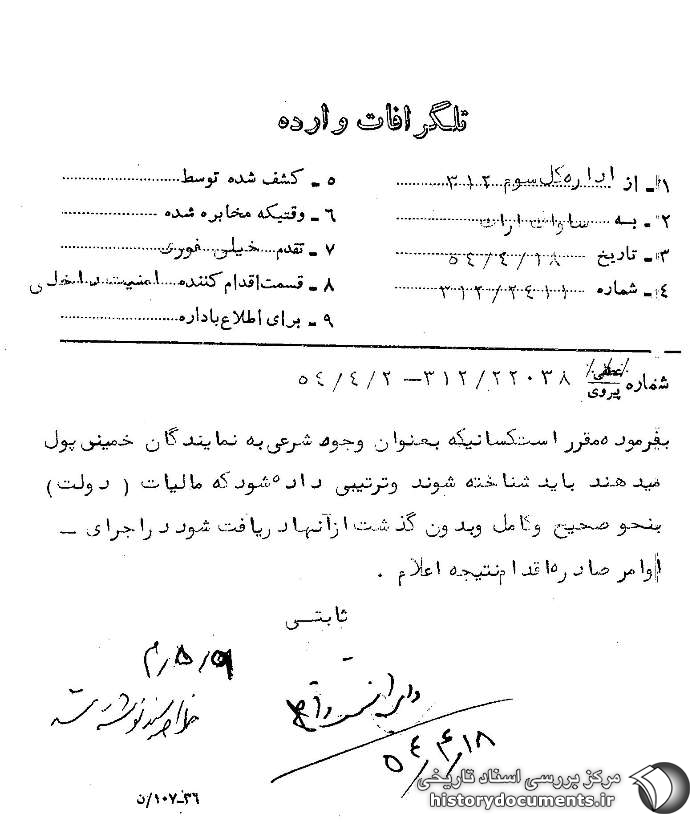 تلگرافات وارده
۱- از اداره کل سوم ۳۱۲
۲- به ساواک اراک
۳- تاریخ ۵۴/۴/۱۸
۴- شماره ۳۱۲/۲۴۱۱
۵- کشف شده توسط
۶- وقتیکه مخابره شده
۷- تقدم خیلی فوری
۸- قسمت اقدام کننده امنیت داخلی
۹- برای اطلاع باداره
شماره پیروی ۳۱۲/۲۲۰۳۸ – ۵۴/۴/۲
بفرموده مقرر است کسانیکه بعنوان وجوه شرعی به نمایندگان خمینی پول
میدهند باید شناخته شوند و ترتیبی داده شود که مالیات ( دولت )
بنحو صحیح و کامل و بدون گذشت از آنها دریافت شود در اجرای –
اوامر صادره اقدام نتیجه اعلام .
ثابتی
۵۴/۴/۱۸
۳۶-۱۰۷/ن
مرکز بررسی اسناد تاریخی
historydocuments.ir